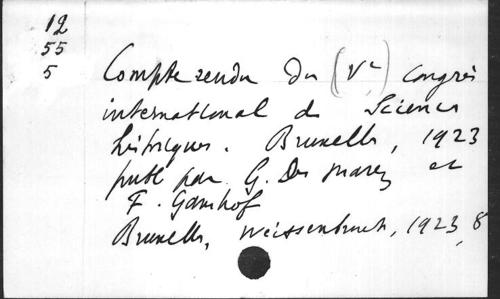 12
55
5
Compte rendu du (Ve) Congrès
international de Sciences
historiques. Bruxelles, 1923
publ par G. Des Marez et
F. Ganshof
Bruxelles, Weissenbruch, 1923, 8